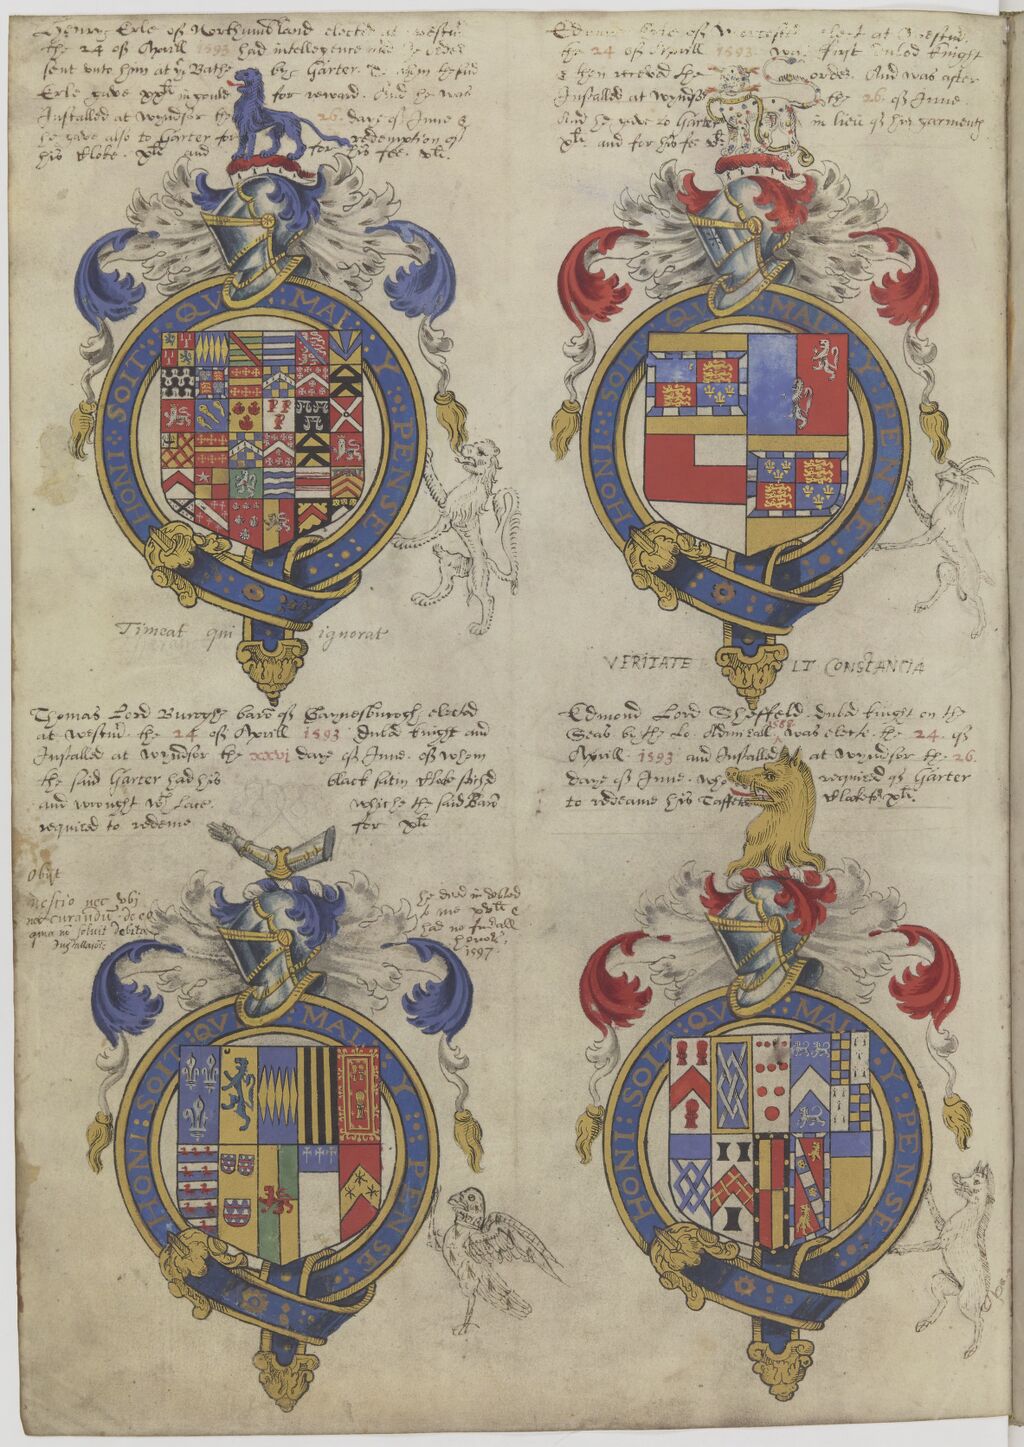 Henry Erle of Northumbland elected at Westm
the 24 of Aprill 1593 had intellegence
sent unto him at ye Bathe by Garter. To whom the said
Erle gave xxli in goulde for reward. And he was
Installed at Wyndsor the 26. daye of June &
he gave also to Garter for redemption of
his Cloke. xli and for his fee. xli.
Erle of Worcester elect at Westm
the 24 of Aprill 1593. was first Knight
& then receved the order. And was after
Installed at Wyndsor the 26. of June.
And he gave to Garter in lieu of his garments
xli. and for his fee
HONI · SOIT · QVI · MAL · Y · PENSE
HONI · SOIT · QVI · MAL · Y · PENSE
Timeat qui ignorat
VERITATE ET CONSTANCIA
Thomas Lord Burgh baro of Gaynesburogh elected
at Westm the 24 of Aprill 1593 knight and
Installed at Wyndsor the xxvi daye of June. of whom
the said Garter had his black satin Cloke
and wrought wth lace. whiche the said Baro
required to redeme for xli
Edmond Lord Sheffeld. knight on the
Seas by the Lo: Admirall 1588 was electe the 24. of
Aprill 1593 and Installed at Wyndsor the 26.
daye of June. who required of Garter
to redeame his Taffeta Cloke xli.
Obijt
nescio nec ubi
nec curandu
quia no solvit debita
Installatio:
he died in
to me &
had no funerall
1597.
HONI · SOIT · QVI · MAL · Y · PENSE
HONI · SOIT · QVI · MAL · Y · PENSE